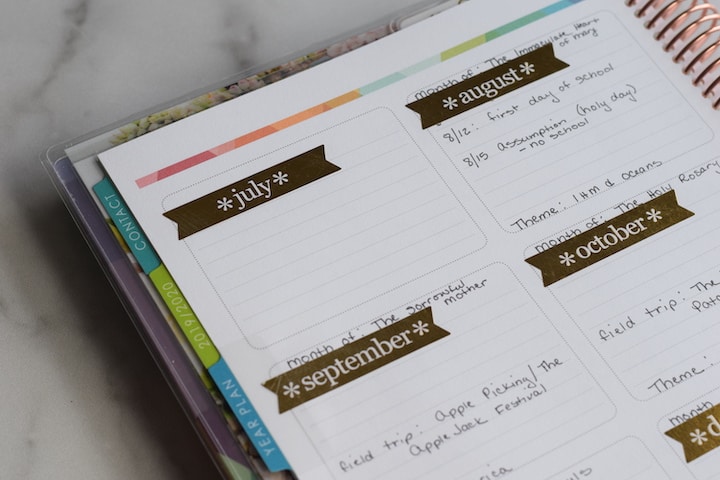 *july*
month of: The Immaculate Heart
of mary
*august*
8/12: first day of school
8/15 assumption (holy day)
- no school
Theme: & oceans
month of: The sorrowful
mother
*september*
field trip: Apple Picking/The
AppleJack Festival
month of: The Holy Rosary
*october*
field trip: The
Theme:
month
CONTACT
2019/2020
YEAR PLAN